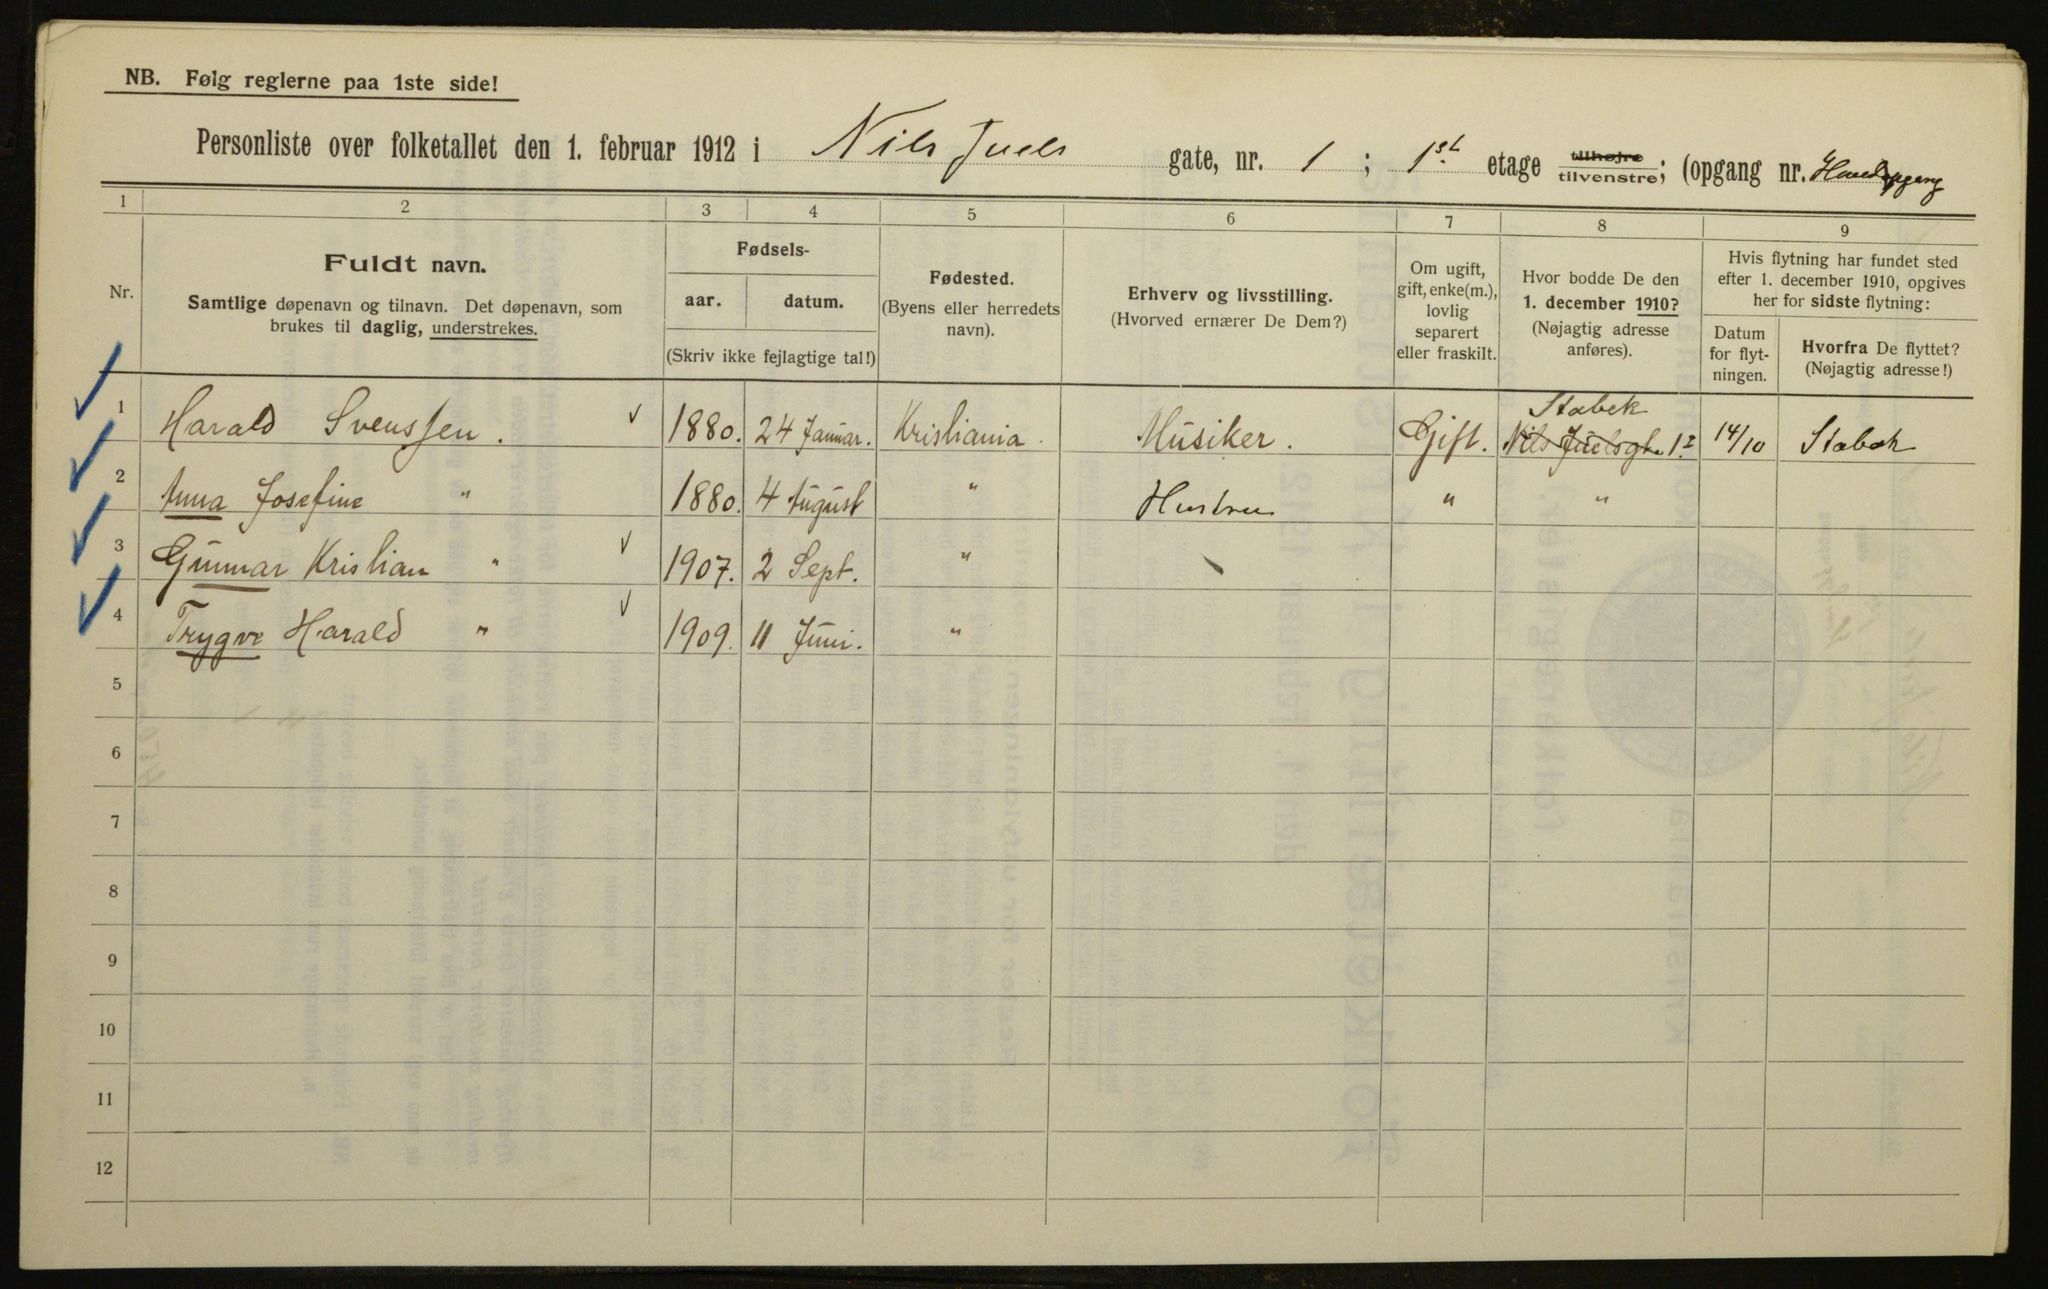 NB. Følg reglerne paa 1ste side!
Personliste over folketallet den 1. februar 1912 i Nils Juels gate, nr. 1 ; 1st etage tilhøjre tilvenstre; (opgang nr. Hovedopgang
1 2 3 4 5 6 7 8 9
Nr.
Fuldt navn.
Samtlige døpenavn og tilnavn. Det døpenavn, som
brukes til daglig, understrekes.
Fødsels-
aar. datum.
(Skriv ikke fejlagtige tal!)
Fødested.
(Byens eller herredets
navn).
Erhverv og livsstilling.
(Hvorved ernærer De Dem?)
Om ugift,
gift, enke(m.),
lovlig
separert
eller fraskilt.
Hvor bodde De den
1. december 1910?
(Nøjagtig adresse
anføres).
Hvis flytning har fundet sted
efter 1. december 1910, opgives
her for sidste flytning:
Datum
for flyt-
ningen.
Hvorfra De flyttet?
(Nøjagtig adresse!)
Stabek
1 Harald Svenssen. 1880. 24 Januar. Kristiania. Musiker. Gift. Nils Juelsgt. 1 I 14/10 Stabæk
2 Anna Josefine " 1880. 4 August " Hustru " "
3 Gunnar Kristian " 1907. 2 Sept. "
4 Trygve Harald " 1909. 11 Juni. "
5
6
7
8
9
10
11
12